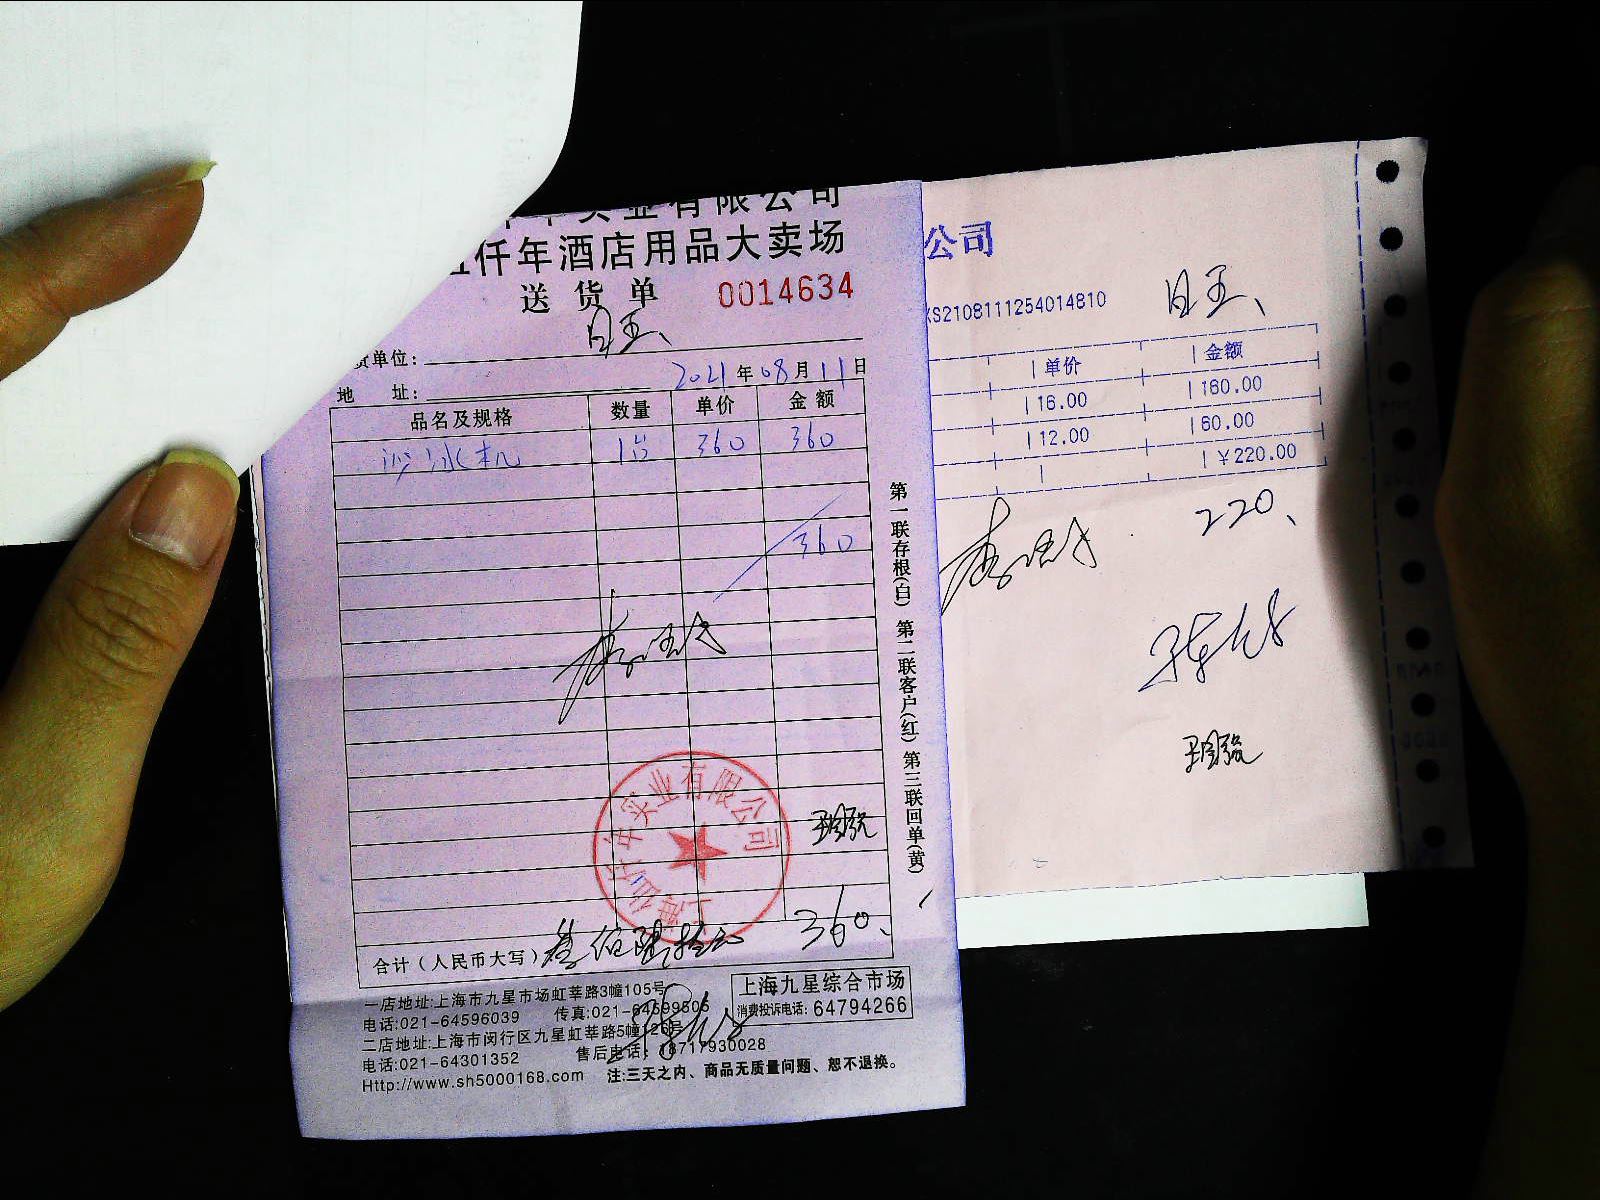 实业有限公司
仟年酒店用品大卖场
送货单 0014634
日王、
货单位:
2021年08月11日
地 址:
品名及规格 数量 单价 金额
沙冰机 1台 360 360
360
第一联存根(白) 第二联客户(红) 第三联回单(黄)
实业有限公司
合计(人民币大写) 叁佰陆拾元 360、
一店地址:上海市九星市场虹莘路3幢105号
电话:021-64596039 传真:021-64599506
二店地址:上海市闵行区九星虹莘路5幢126号
电话:021-64301352 售后电话:18717930028
Http://www.sh5000168.com 注:三天之内、商品无质量问题、恕不退换。
上海九星综合市场
消费投诉电话:64794266
公司
XS2108111254014810 日王、
单价 金额
16.00 160.00
12.00 60.00
￥220.00
220、